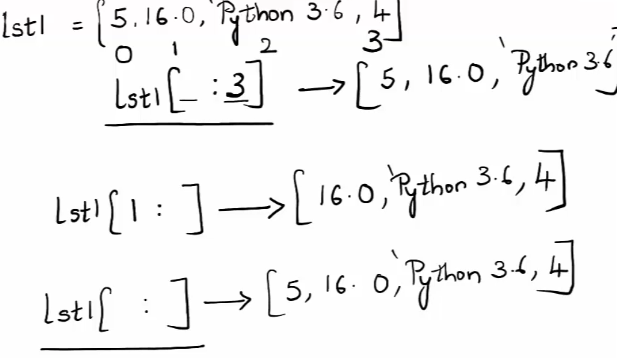 lst1 = [5, 16.0, 'Python 3.6, 4]
0 1 2 3
lst1[_ : 3] → [5, 16.0, 'Python 3.6']
lst1[1 : ] → [16.0, 'Python 3.6, 4]
lst1[ : ] → [5, 16.0, 'Python 3.6, 4]